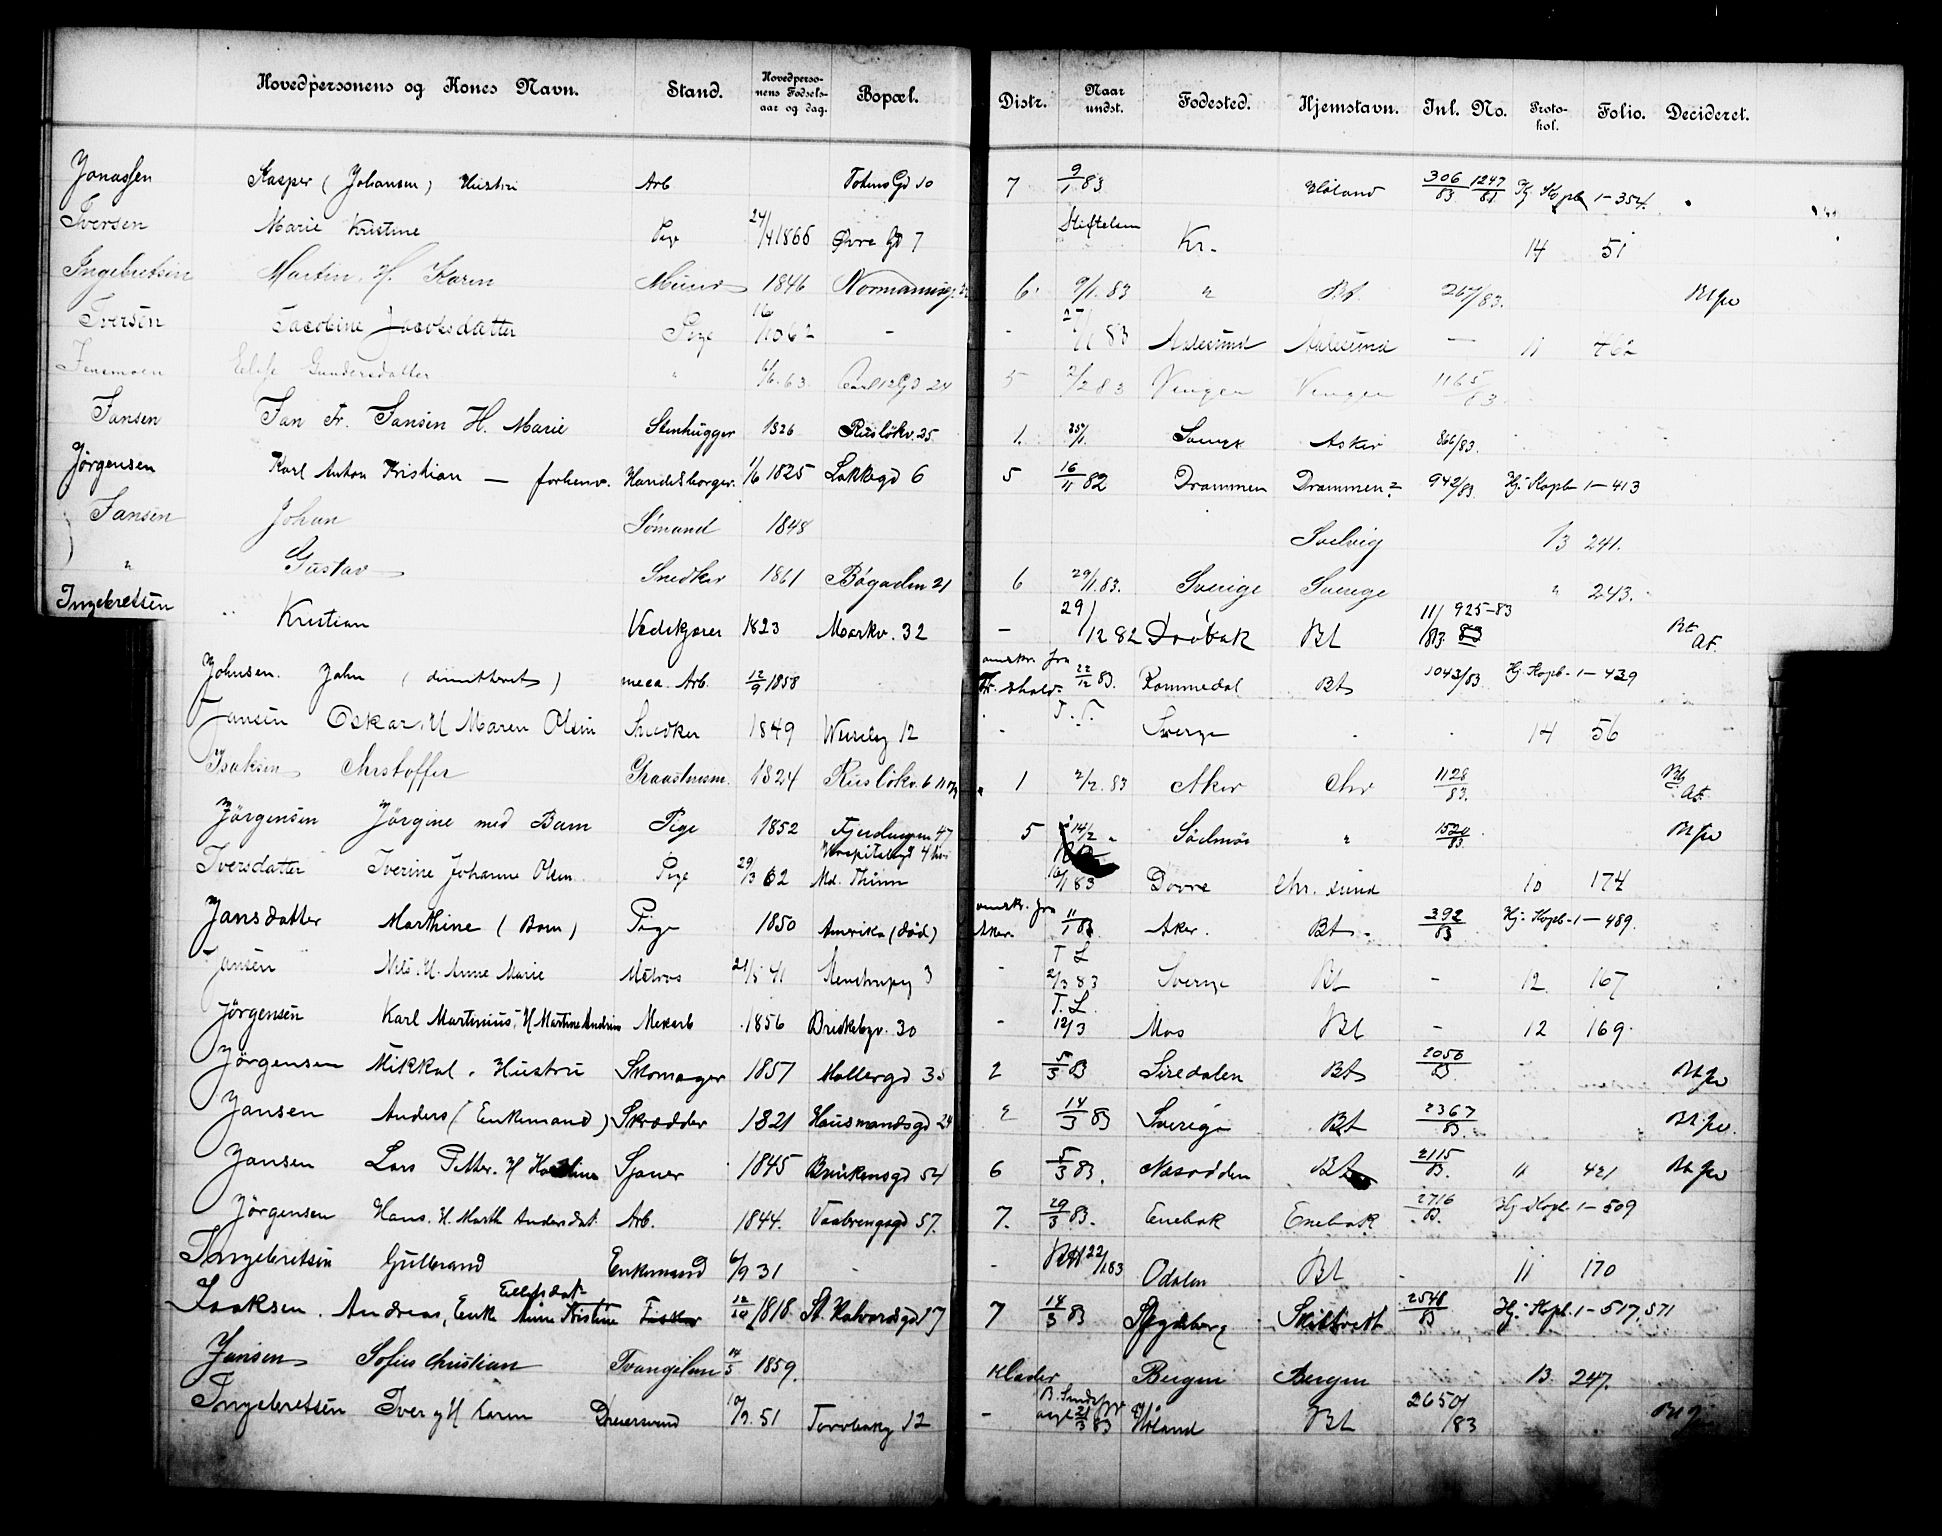 Hovedpersonens og Kones Navn. Stand. Hovedperso-nens Fødsels-aar og dag. Bopæl. Distr. Naar undst. Fødested. Hjemstavn. Inl. No. Proto-kol. Folio. Decideret.
Jonassen Kasper (Johansen) Hustru Arb Gd 10 7 9/1 83 Høland 306/83 1247/81 Hj. Kopb 1-354.
Iversen Marie Kristine Pige 24/4 1866 Øvre Gd 7 Stiftelsen Kr. 14 51
Ingebretsen Martin. H. Karen Murer 1846 6 9/1. 83 " Bt 267/83. Bt
Iversen Jacobine Jacobsdatter Pige 16/ 62 - - 27/1 83 Aalesund Aalesund - 11 762
Elise Gundersdatter " 6/6. 63 Gd 24 5 2/2 83 Vinger Vinger 1165/83.
Jansen Jan Fr. Jansen H. Marie Stenhugger 1826 Ruseløkv. 25 1. 25/1. Asker 866/83.
Jørgensen Karl Anton Kristian - forhenv. Handelsborger. 1/6 1825 Lakkegd 6 5 16/11 82 Drammen Drammen? 942/83. Hj. Kopb 1-413
Jansen Johan Sømand 1848 Svelvig 13 241.
" Gustav Snedker 1861 Bøgaden 21 6 29/1. 83. Sverige Sverige " 243.
Ingebretsen Kristian Vedskjærer 1823 Markv. 32 - 29/12 82 Drøbak Bt 11/ 83 925-83 Bt Af.
Johnsen. John (dimitteret) meca. Arb. 12/9 1858 omskr. fra Fr.shald. 22/12 83. Rommedal Bt 1043/83 Hj. Kopb. 1-439
Jansen Oskar. H Maren Olsen Snedker 1849 12 - Sverge 14 56
Isaksen Christoffer 1824 Ruseløkv. 6 1 2/2. 83 Aker Chr 1128/83. Af.
Jørgensen Jørgine med Barn Pige 1852 Fjerdingen 47 5 14/2 " Sødmør " 1520/83 Bt
Iversdatter Iverine Johanne Olsen Pige 29/3 62 Md. Thunn 16/1 83 Dovre Chr. sund 10 174
Jansdatter Marthine (Barn) Pige 1850 Amerika (død) omskr. fra Aker. 11/1 83 Aker. Bt. 392/83 Hj. Kopb. 1-489.
Jansen Nils. H. Anne Marie Matros 21/5 41 Stenstrupg 3 - T L 2/3 83 Sverge Bt - 12. 167
Jørgensen Karl Martinius, H Martine Andrine Mekarb 1856 Briskebyv. 30 - T. L. 12/3 Mos Bt - 12 169.
Jørgensen Mikkal. Hustru Skomager 1857 Møllergd 35 2 5/3 83 Siredalen Bt 2050/83. Bt
Jansen Anders (Enkemand) Skrædder 1821 Hausmandsgd 24 2 14/3 83 Sverige Bt 2367/83. Bt
Jansen Lars Petter. H Sjauer 1845 Brinkensgd 54 6 5/3 83. Næsodden Bt 2115/83. 11 421 Bt
Jørgensen Hans. H. Marth Andersdat. Arb. 1844. Vaalerengsgd 57. 7. 29/3 83. Enebak Enebak 2716/83. Hj. Kopb. 1-509
Ingebretsen Gulbrand Enkemand 6/9 31 - - 22/1 83 Odalen Bt - 11 170
Isaksen. Andreas, Enke Anne Kristine Eilefsdat- 12/10 1818. St. Halvardsgd 17 7 14/3 83 Skibtvedt 2548/83 Hj. Kopb. 1-517, 571
Jansen Sofus Christian 14/5 1859. Bergen Bergen 13 247.
Ingebretsen Iver og H Karen 10/9. 51 Torvbakg 12 - 83 Høland Bt 2650/83 Bt